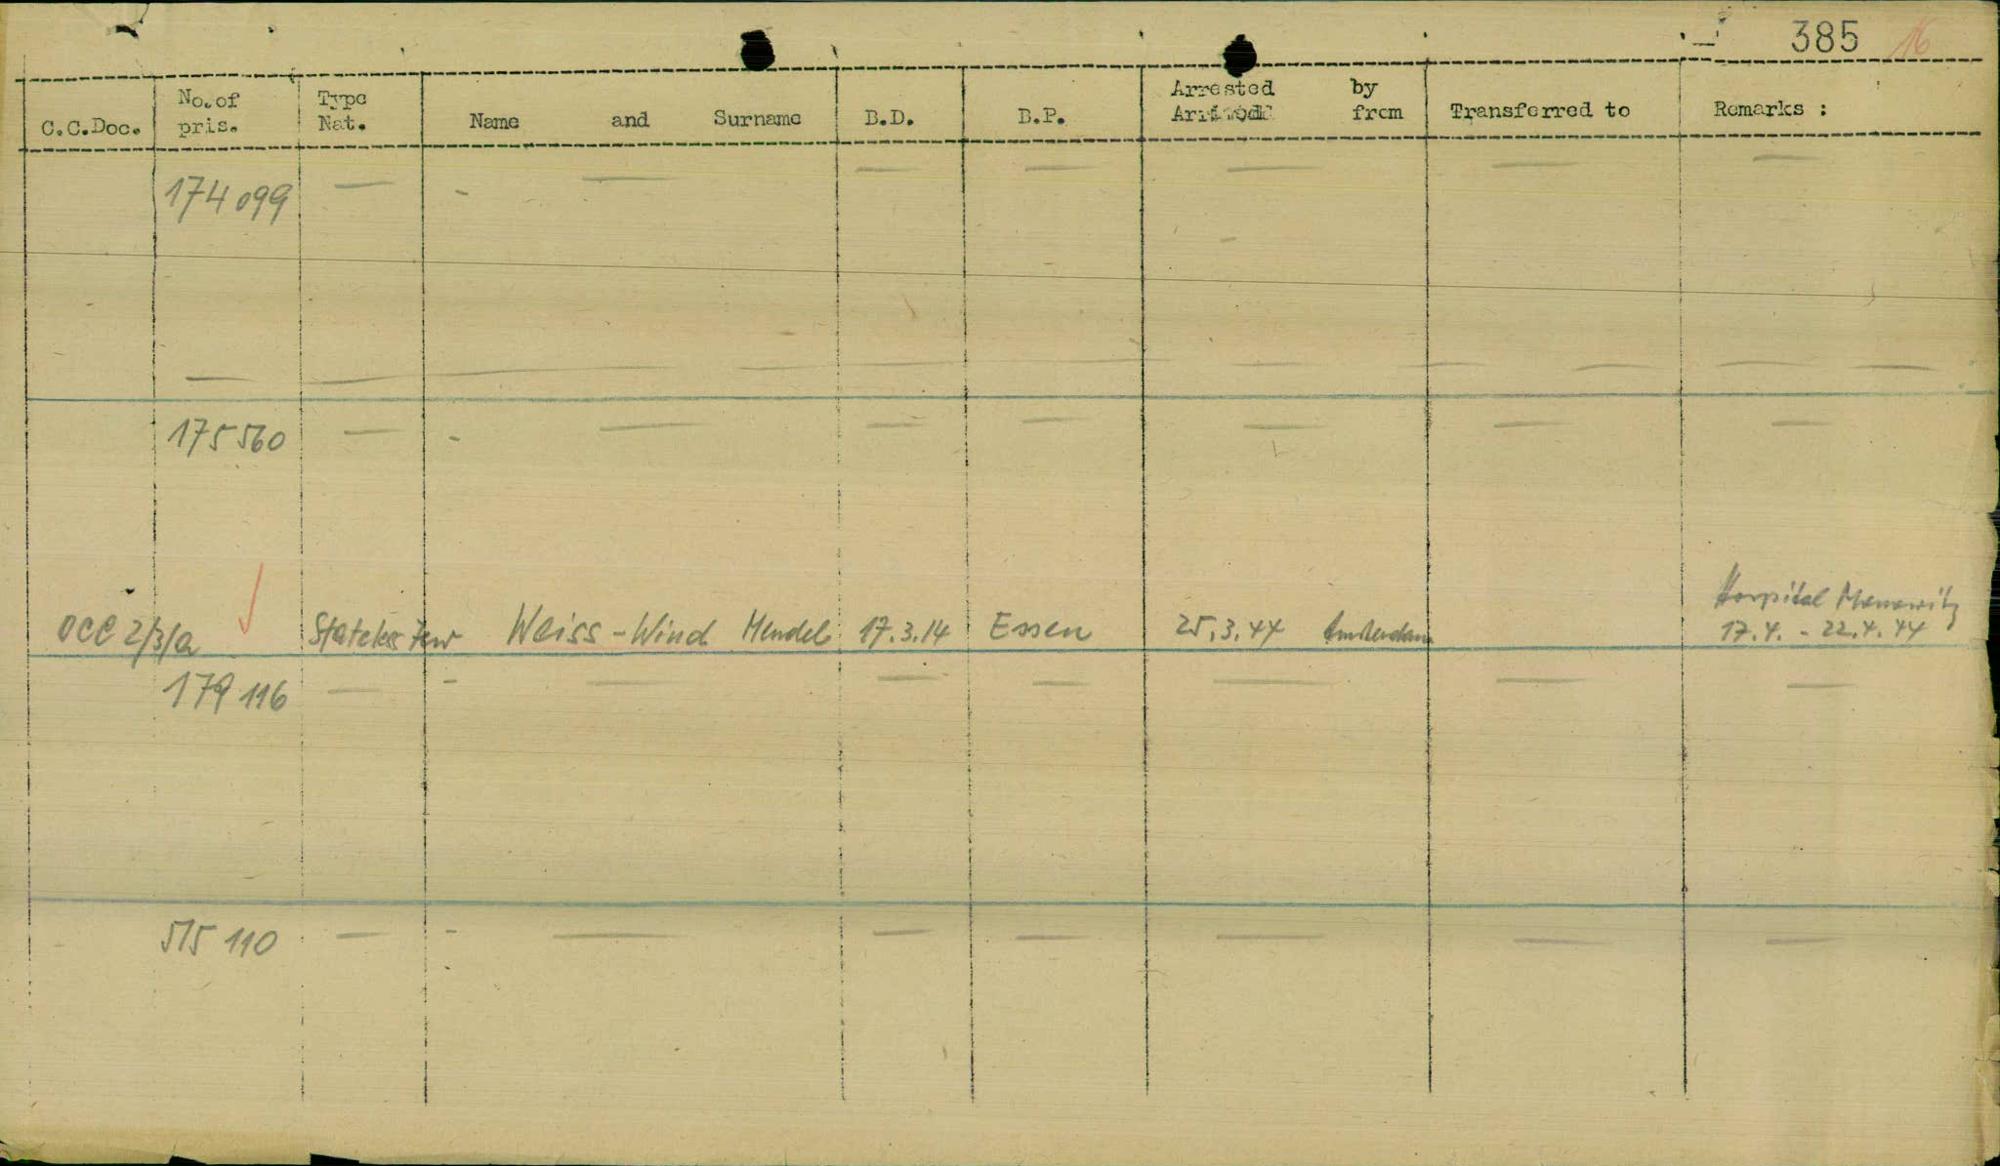 385 16
C.C.Doc. No. of pris. Type Nat. Name and Surname B.D. B.P. Arrested by from Transferred to Remarks :
174 099 — - — — — — — —
175 560 — - — — — — — —
Hospital Monowitz
OCC 2/3/a Stateless Jew Weiss - Wind Mendel 17.3.14 Essen 25.3.44 Amsterdam 17.4. - 22.4.44
179 116 — - — — — — — —
515 110 — - — — — — — —